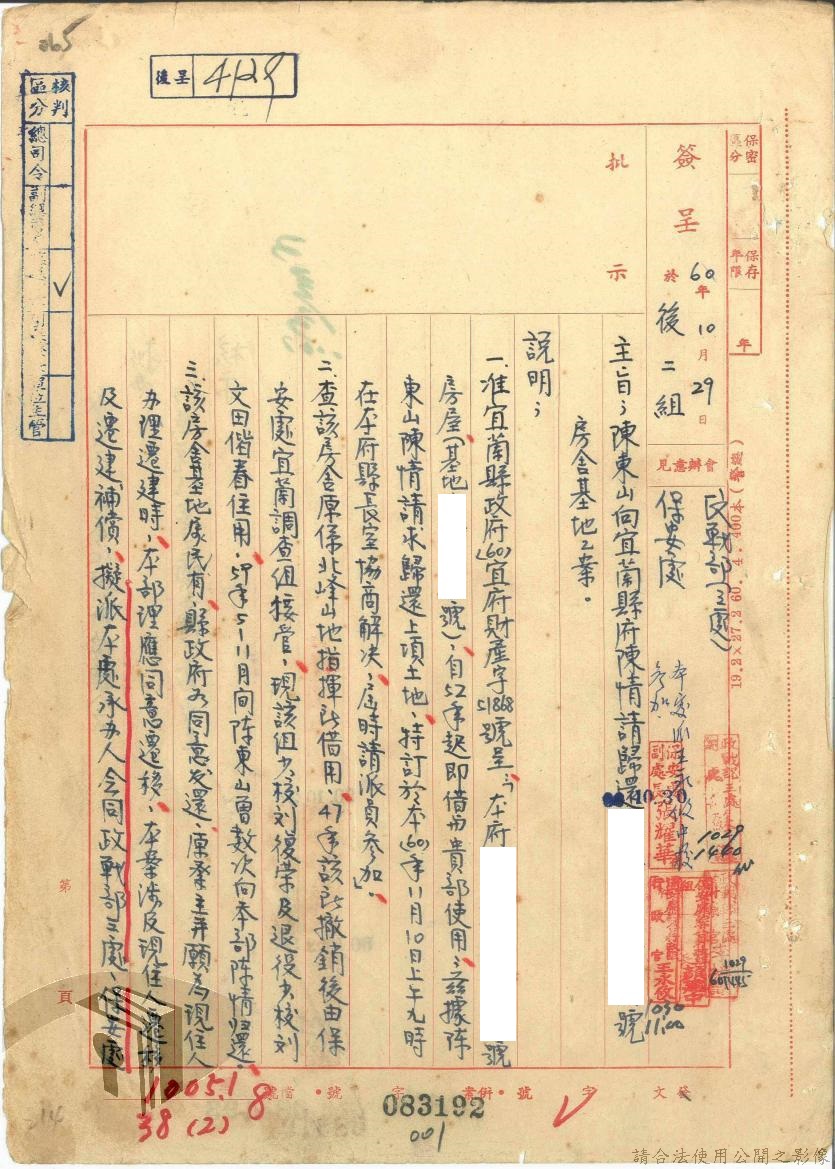 保密區分
保存年限
年
簽呈
於
60年10月29日
後二組
會辦意見
政戰部(三處)
保安處
本處派王永俊中校參加
19.2×27.2 60.4.400本
批示
主旨:陳東山向宜蘭縣府陳情請歸還
號
房舍基地乙案。
說明:
一、准宜蘭縣政府(60)宜府財產字51868號呈:「本府
號
房屋(基地
號),自52年起即借與貴部使用;茲據陈
東山陳情請求歸還上項土地,特訂於本(60)年11月10日上午九時
在本府縣長室協商解決,屆時請派員參加」。
二、查該房舍原係北峰山地指揮所借用,47年該所撤銷後由保
安處宜蘭調查組接管,現該組少校刘復荣及退役少校刘
文田偕眷住用,59年5-11月间陈東山曾数次向本部陈情归還。
三、該房舍基地屬民有,縣政府為同意发還,原業主并願為現住人
办理遷建時,本部理應同意遷移,本案涉及現住人遷移
及遷建補償,擬派本處承办人会同政戰部三處、保安處
10.30
保安處副處長張耀華
1029
1460
1029
1445
參政官王永俊
1030
11.00
後呈 4129
核判區分
總司令
單位主管
✓
065
第
頁
發文
字
號.
併案
字
號.
檔號
083192
001
1005.1
8
38(2)
214
請合法使用公開之影像